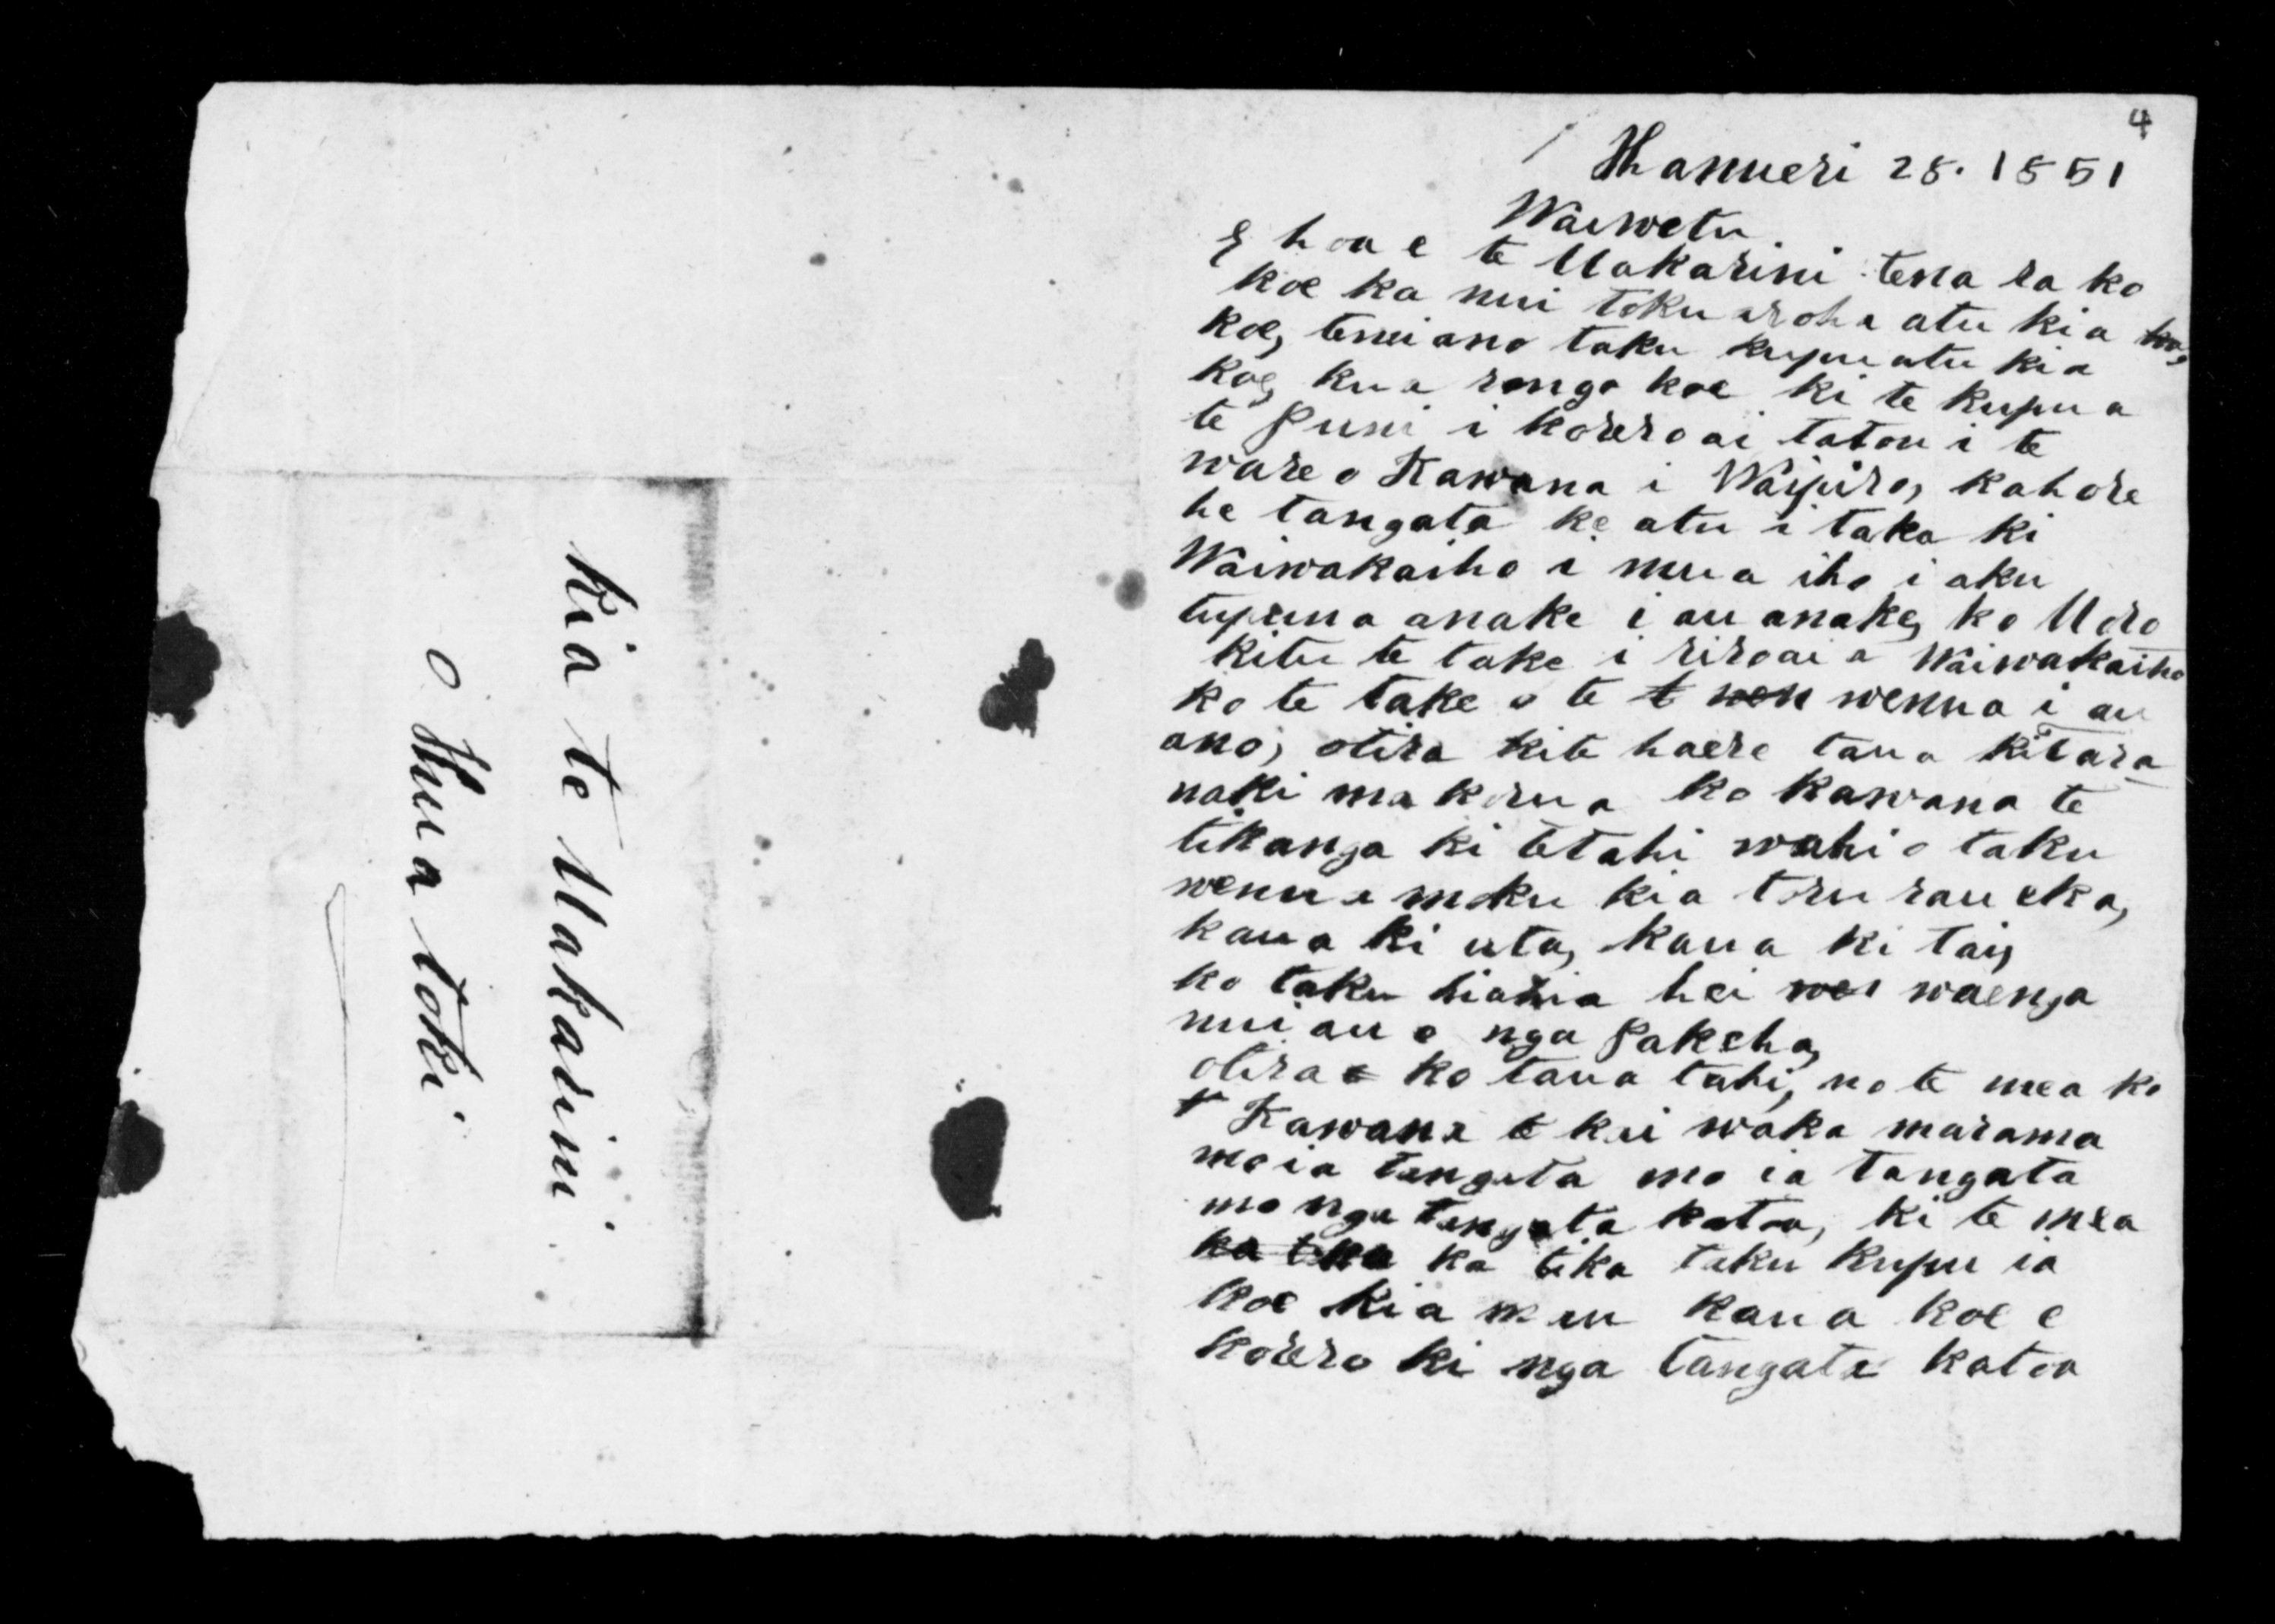 4
Hanueri 28. 1851
Waiwetu
E hoa e te Makarini tena ra ko
koe ka nui toku aroha atu kia koe,
koe, tenei ano taku kupu atu kia
koe, kua rongo koe ki te kupu a
te Puni i korero ai tatou i te
ware o Kawana i Waipiro, kahore
he tangata ke atu i taka ki
Waiwakaiho i mua iho i aku
tupuna anake i au anake, ko Moro
kitu te take i riro ai a Waiwakaiho
ko te take o te t wen wenua i au
ano, otira kite haere taua kitara
naki ma korua ko kawana te
tikanga ki tetahi wahi o taku
wenua moku kia toru rau eka,
kaua ki uta, kaua ki tai,
ko taku hiahia hei wei waenga
nui au o nga Pakeha,
otira e ko taua tahi, no te mea ko
t Kawana te kai waka marama
mo ia tangata mo ia tangata
mo nga tangata katoa, ki te mea
ka tika ka tika taku kupu ia
koe kia mau kaua koe e
korero ki nga tangata katoa
Kia te Makarini
o Huatoki